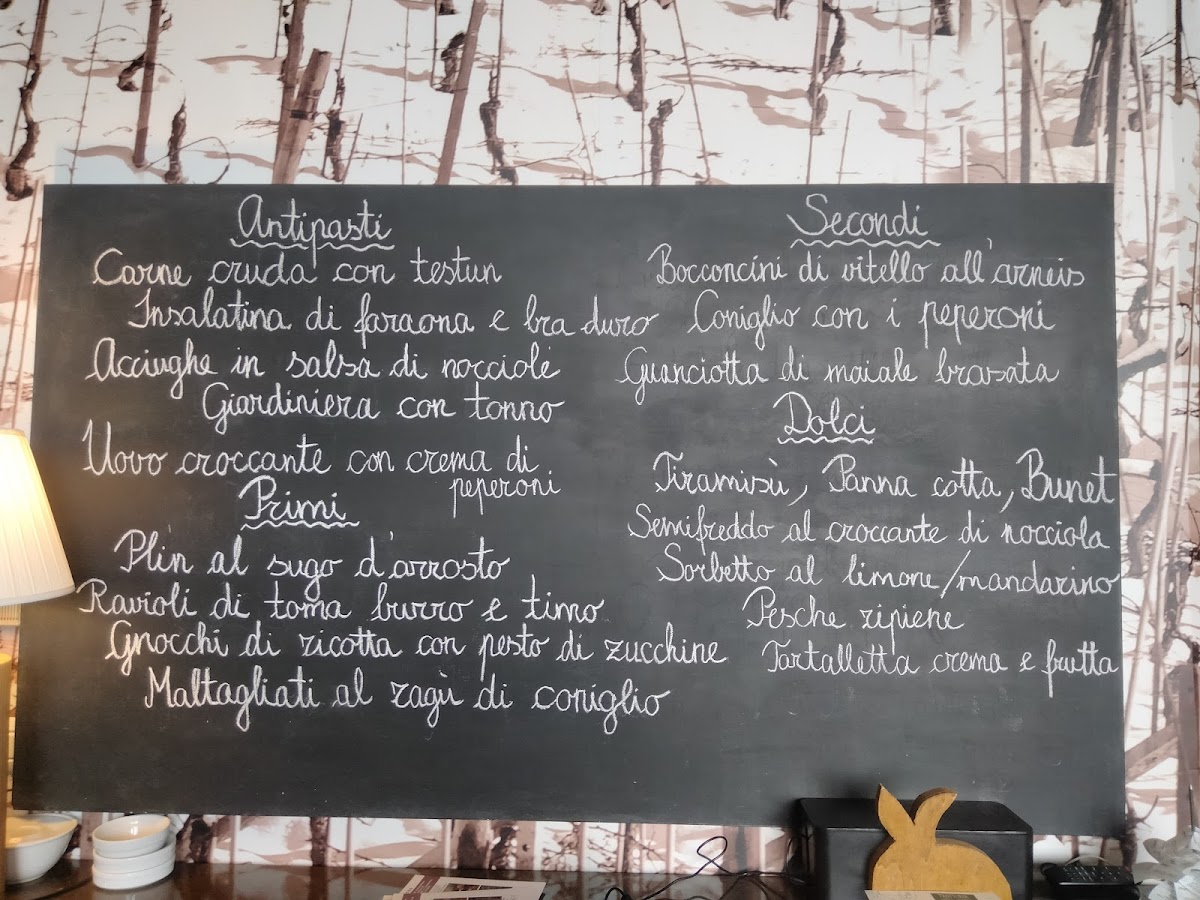 Antipasti
Carne cruda con testun
Insalatina di faraona e bra duro
Acciughe in salsa di nocciole
Giardiniera con tonno
Uovo croccante con crema di
peperoni
Primi
Plin al sugo d'arrosto
Ravioli di toma burro e timo
Gnocchi di ricotta con pesto di zucchine
Maltagliati al ragù di coniglio
Secondi
Bocconcini di vitello all'arneis
Coniglio con i peperoni
Guanciotta di maiale brasata
Dolci
Tiramisù, Panna cotta, Bunet
Semifreddo al croccante di nocciola
Sorbetto al limone/mandarino
Pesche ripiene
Tartalletta crema e frutta